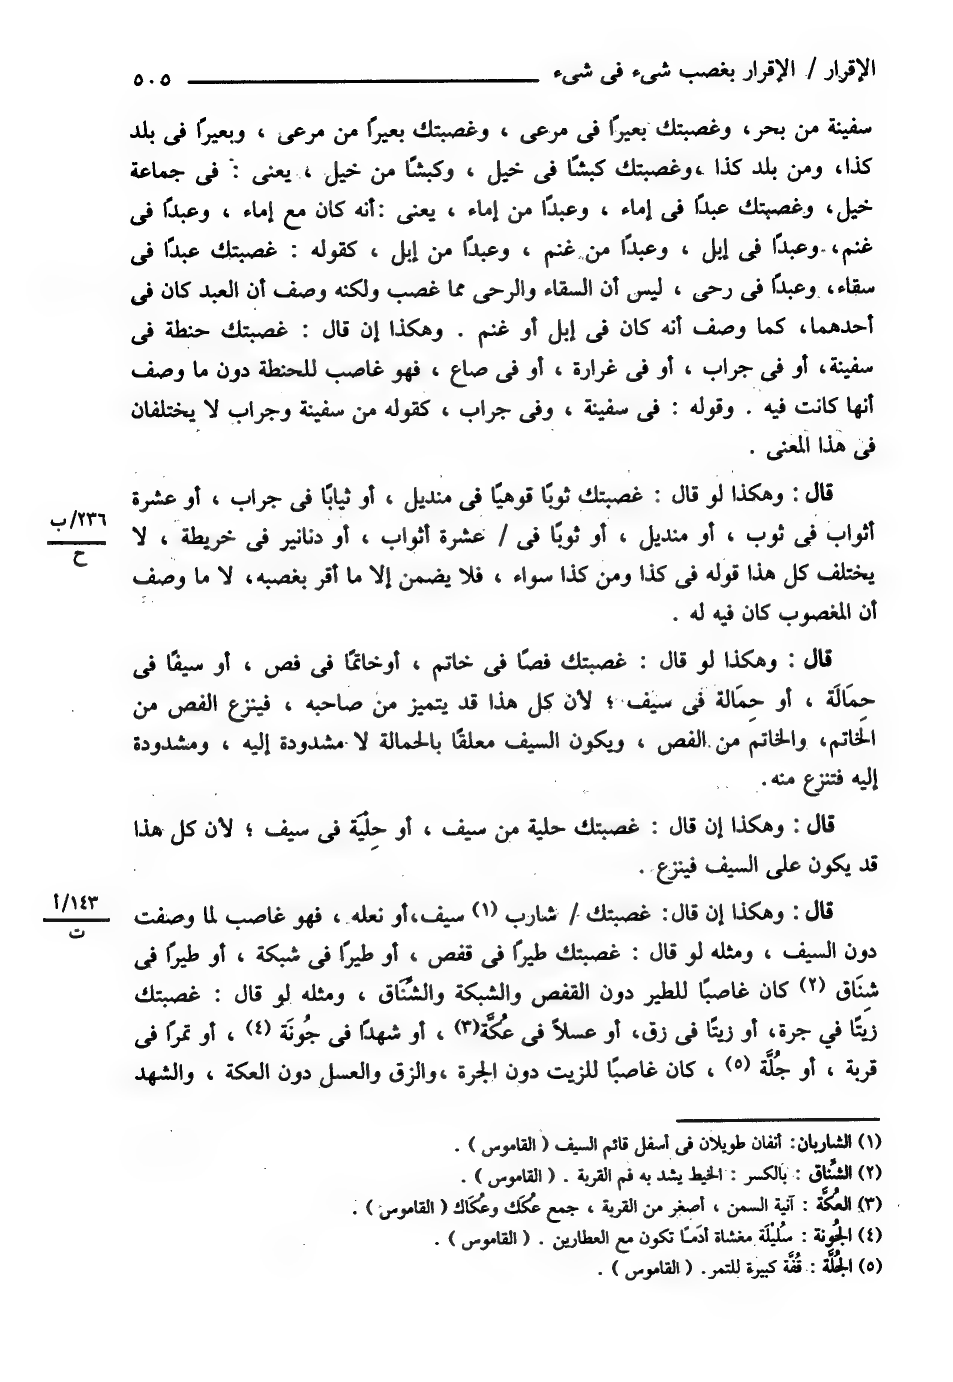 الإقرار / الإقرار بغصب شىء فى شىء ٥٠٥
سفينة من بحر، وغصبتك بعيرًا فى مرعى ، وغصبتك بعيرًا من مرعى ، وبعيرًا فى بلد
كذا، ومن بلد كذا ،وغصبتك كبشًا فى خيل ، وكبشًا من خيل ، يعنى : فى جماعة
خيل، وغصبتك عبدًا فى إماء ، وعبدًا من إماء ، يعنى :أنه كان مع إماء ، وعبدًا فى
غنم، وعبدًا فى إبل ، وعبدًا من غنم ، وعبدًا من إبل ، كقوله : غصبتك عبدًا فى
سقاء، وعبدًا فى رحى ، ليس أن السقاء والرحى مما غصب ولكنه وصف أن العبد كان فى
أحدهما، كما وصف أنه كان فى إبل أو غنم . وهكذا إن قال : غصبتك حنطة فى
سفينة، أو فى جراب ، أو فى غرارة ، أو فى صاع ، فهو غاصب للحنطة دون ما وصف
أنها كانت فيه . وقوله : فى سفينة ، وفى جراب ، كقوله من سفينة وجراب لا يختلفان
فى هذا المعنى .
قال : وهكذا لو قال : غصبتك ثوبًا قوهيًا فى منديل ، أو ثيابًا فى جراب ، أو عشرة
٢٣٦/ب
أثواب فى ثوب ، أو منديل ، أو ثوبًا فى / عشرة أثواب ، أو دنانير فى خريطة ، لا
ح
يختلف كل هذا قوله فى كذا ومن كذا سواء ، فلا يضمن إلا ما أقر بغصبه، لا ما وصف
أن المغصوب كان فيه له .
قال : وهكذا لو قال : غصبتك فصًا فى خاتم ، أوخاتمًا فى فص ، أو سيفًا فى
حِمَالَة ، أو حِمَالة فى سيف ؛ لأن كل هذا قد يتميز من صاحبه ، فينزع الفص من
الخاتم، والخاتم من الفص ، ويكون السيف معلقًا بالحمالة لا مشدودة إليه ، ومشدودة
إليه فتنزع منه.
قال : وهكذا إن قال : غصبتك حلية من سيف ، أو حِلْيَة فى سيف ؛ لأن كل هذا
قد يكون على السيف فينزع .
قال : وهكذا إن قال: غصبتك / شارب (١) سيف،أو نعله ، فهو غاصب لما وصفت
١٤٣/أ
ت
دون السيف ، ومثله لو قال : غصبتك طيرًا فى قفص ، أو طيرًا فى شبكة ، أو طيرًا فى
شِنَاق (٢) كان غاصبًا للطير دون القفص والشبكة والشَّنَاق ، ومثله لو قال : غصبتك
زيتًا في جرة، أو زيتًا فى زق، أو عسلاً فى عُكَّة(٣) ، أو شهدًا فى جُونَة (٤) ، أو تمرًا فى
قربة ، أو جُلَّة (٥) ، كان غاصبًا للزيت دون الجرة ،والزق والعسل دون العكة ، والشهد
(١) الشاربان: أنفان طويلان فى أسفل قائم السيف ( القاموس ) .
(٢) الشِّناق : بالكسر : الخيط يشد به فم القربة . ( القاموس ) .
(٣) العُكَّة : آنية السمن ، أصغر من القربة ، جمع عُكَك وعُكَاك ( القاموس ) .
(٤) الجُونة : سُليْلَة مغشاة أدَمًا تكون مع العطارين . ( القاموس ) .
(٥) الجُلَّة : قُفَّة كبيرة للتمر. ( القاموس ) .